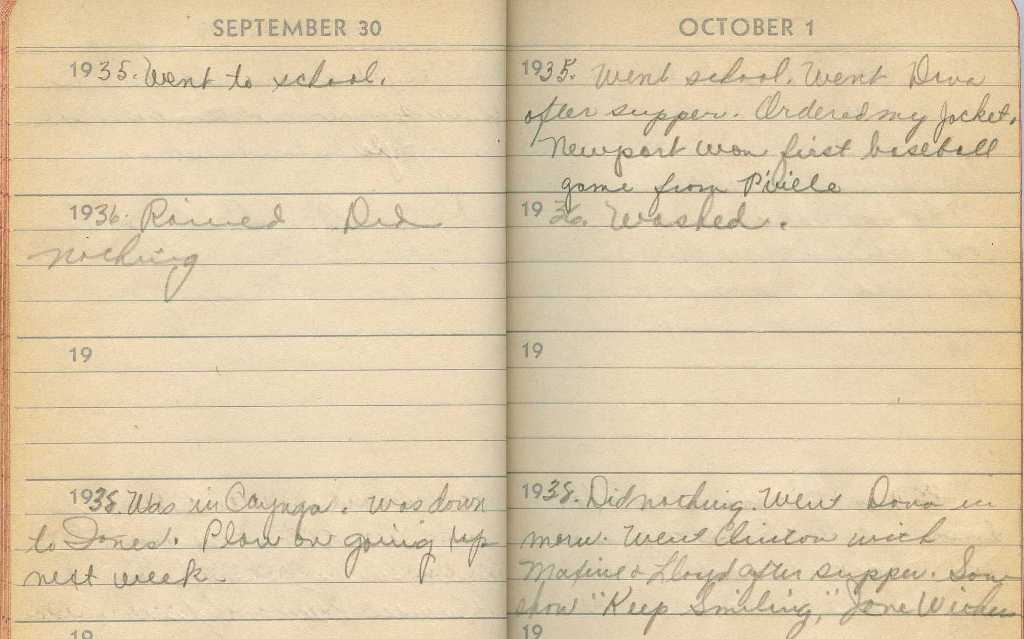 SEPTEMBER 30
1935. Went to school.
1936. Rained Did
nothing
19
1938. Was in Cayuga. Was down
to Ione's. Plan on going up
next week.
19
OCTOBER 1
1935. Went school. Went Dana
after supper. Ordered my jacket.
Newport won first baseball
game from P'ville
1936. Washed.
19
1938. Did nothing. Went Dana in
morn. Went Clinton with
Maxine & Lloyd after supper. Saw
show "Keep Smiling," Jane Withers
19